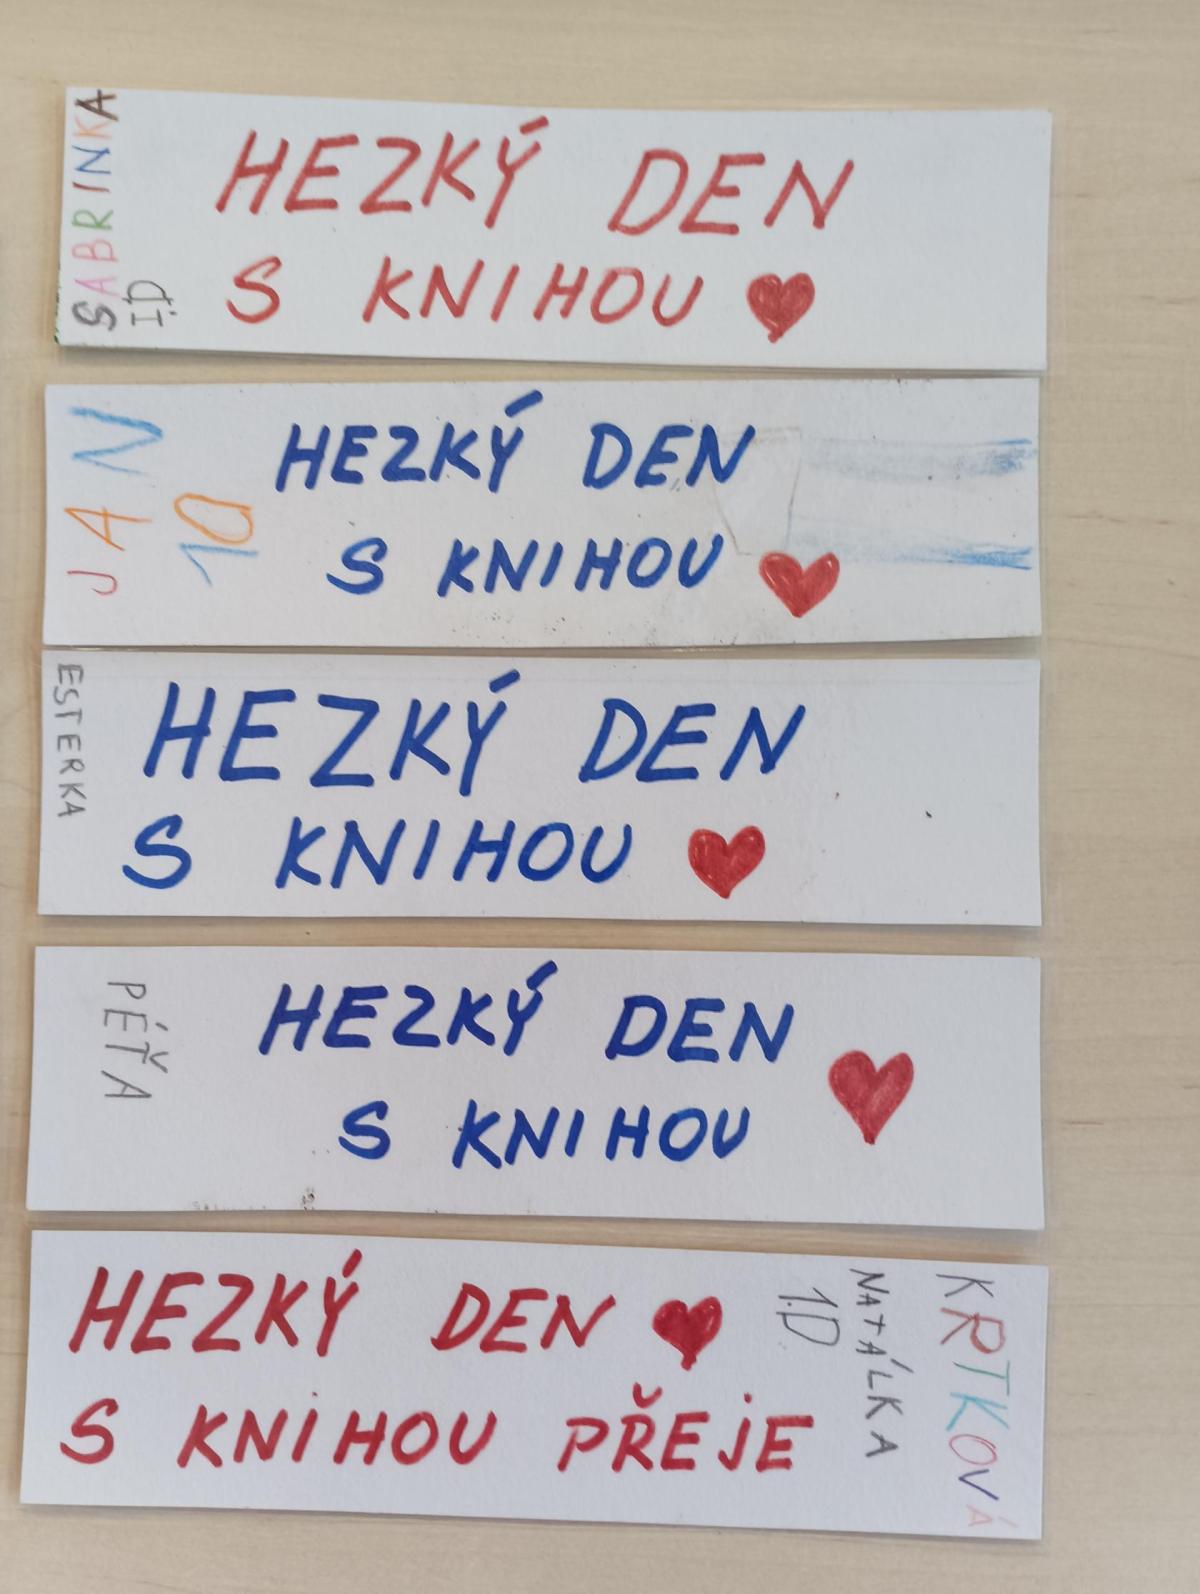 SABRINKA
I.D
HEZKÝ DEN
S KNIHOU
JAN
10
HEZKÝ DEN
S KNIHOU
ESTERKA
HEZKÝ DEN
S KNIHOU
PÉŤA
HEZKÝ DEN
S KNIHOU
HEZKÝ DEN
S KNIHOU PŘEJE
1.D
NATÁLKA
KRTKOVÁ